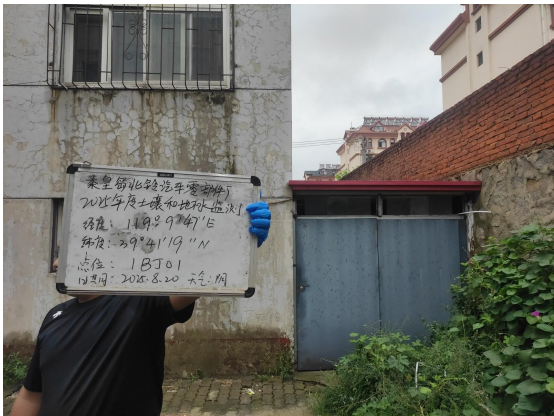 秦皇岛北铃汽车零部件厂
2025年度土壤和地下水监测
经度: 119°9'47"E
纬度: 39°41'19"N
点位: 1BJ01
日期: 2025.8.20 天气:阴